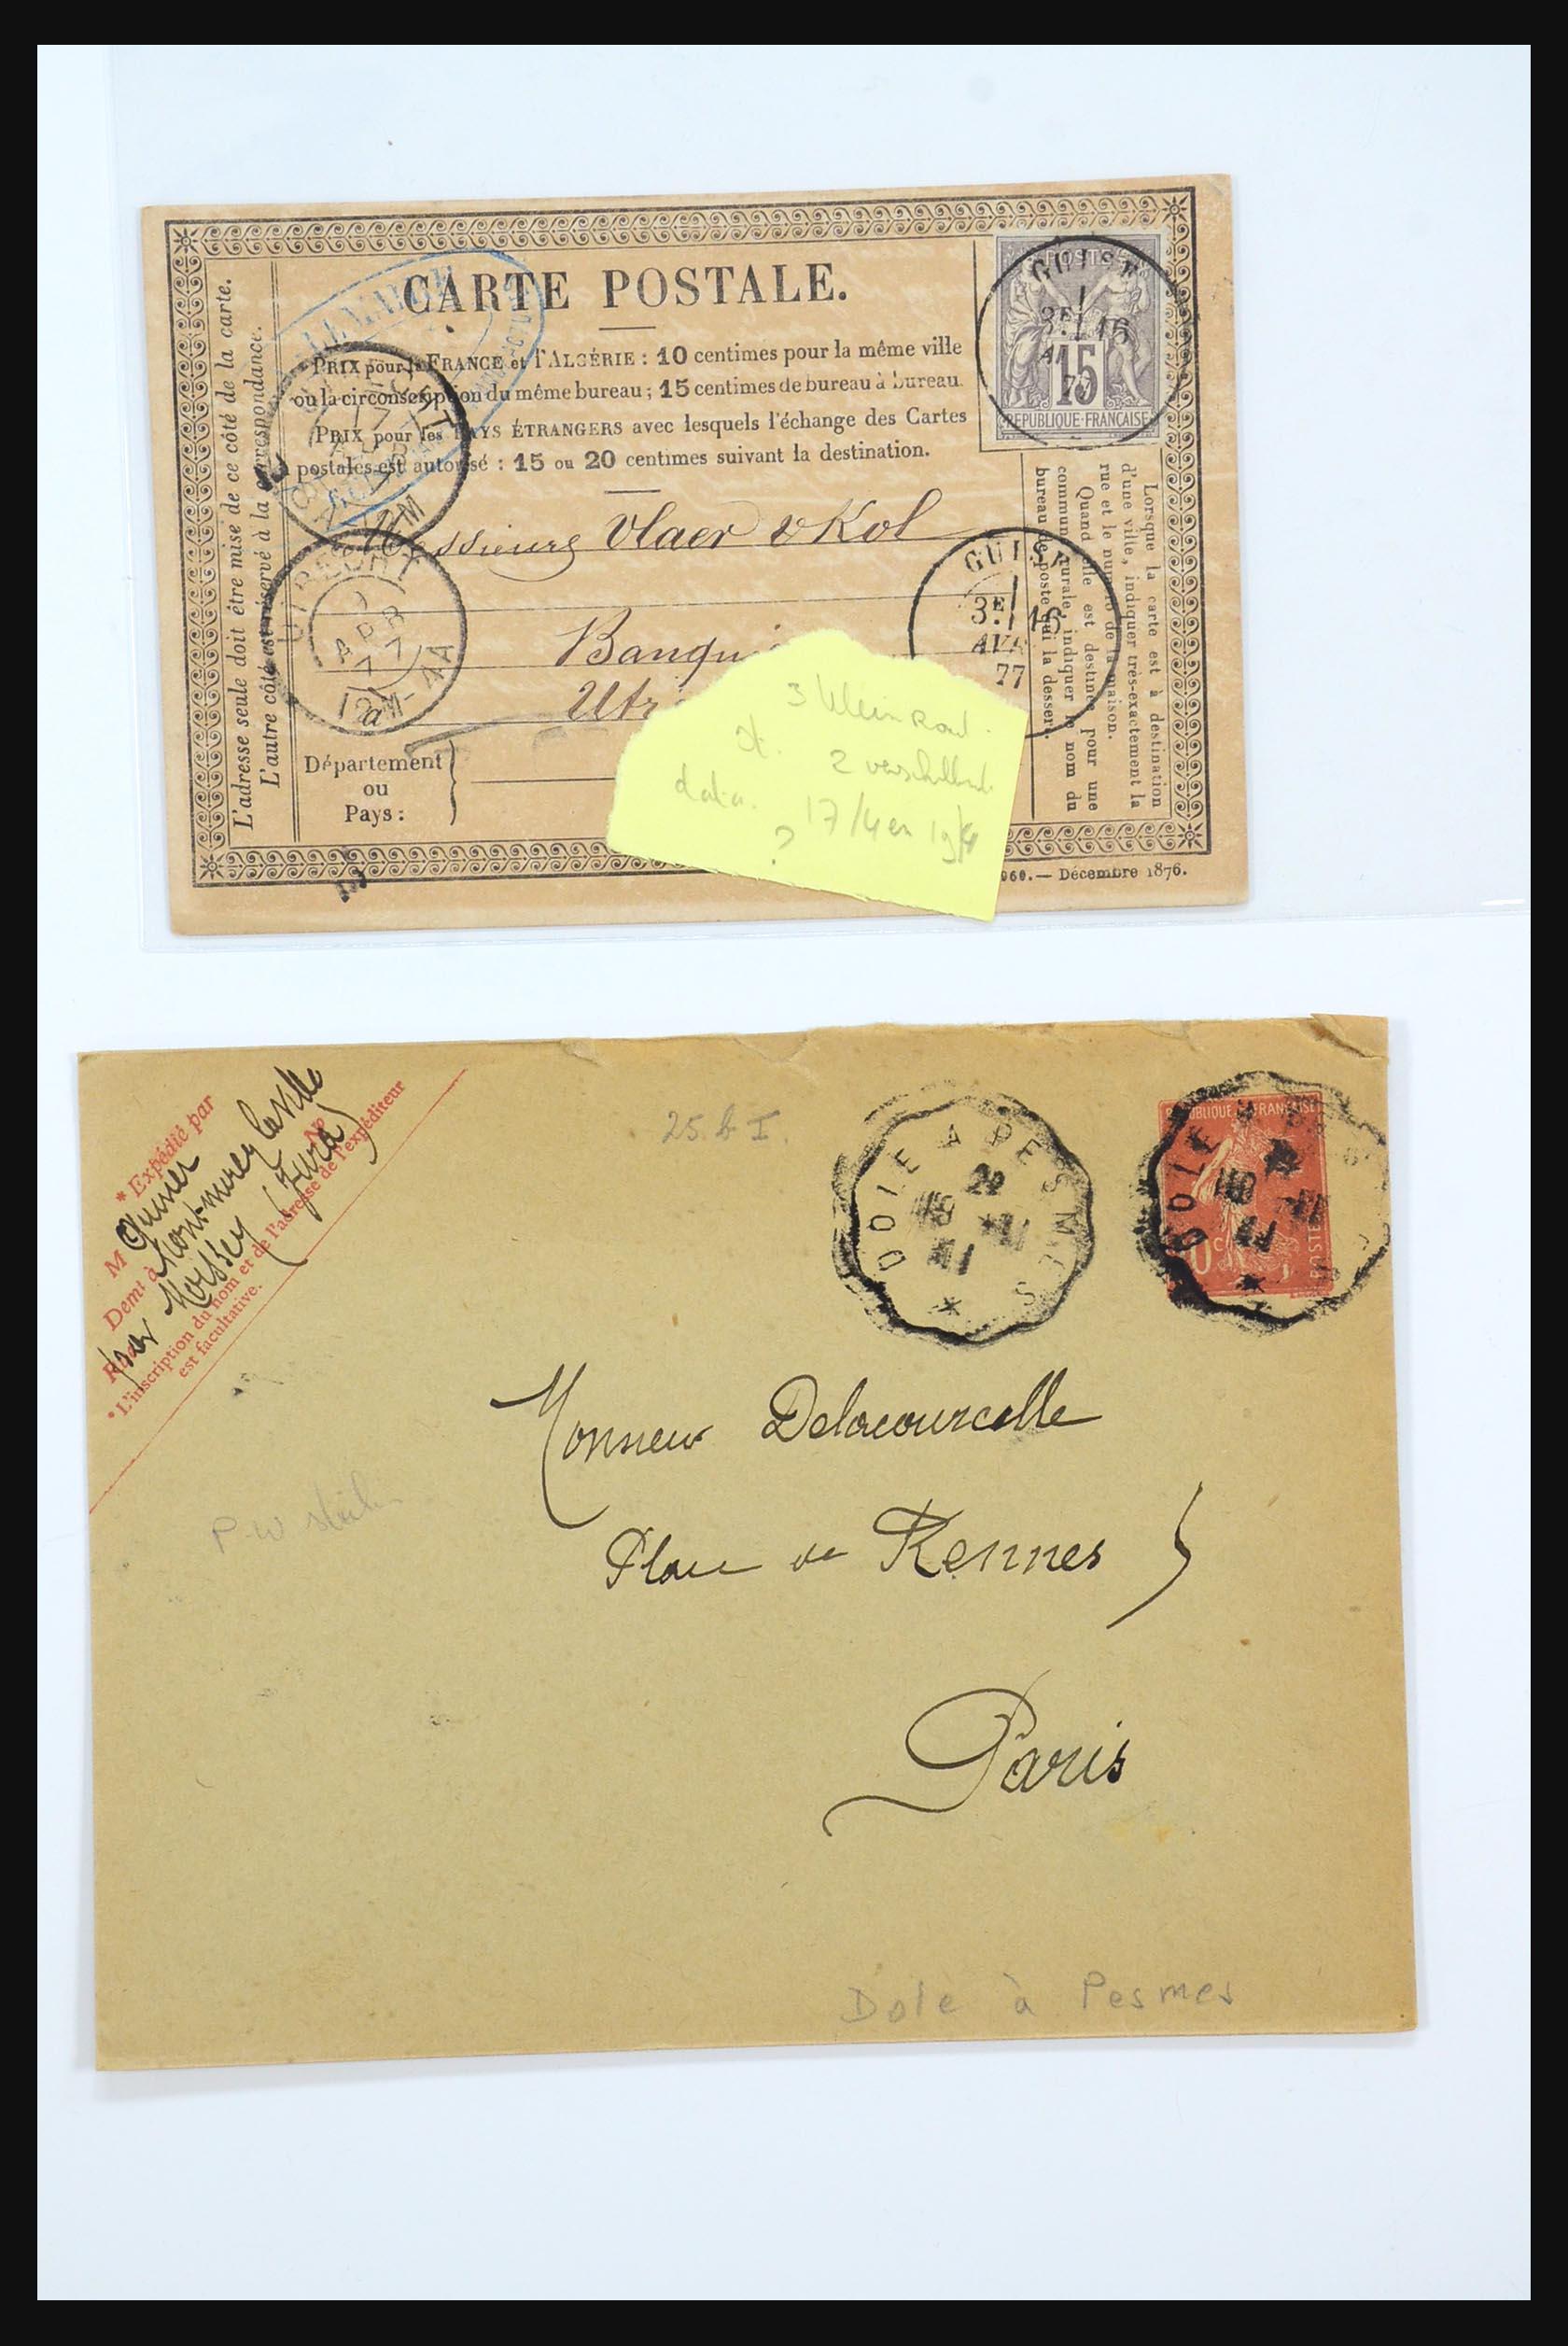 CARTE POSTALE.
PRIX pour la FRANCE et l'ALGÉRIE : 10 centimes pour la même ville
ou la circonscription du même bureau ; 15 centimes de bureau à bureau.
PRIX pour les PAYS ÉTRANGERS avec lesquels l'échange des Cartes
postales est autorisé : 15 ou 20 centimes suivant la destination.
L'adresse seule doit être mise de ce côté de la carte.
L'autre côté est réservé à la correspondance.
POSTES
15
REPUBLIQUE FRANÇAISE
GUISE
3E 16
77
Messieurs Vlaer & Kol
GUISE
3E 16
AVR
77
Banqui
à Utr
Département
ou
Pays :
Lorsque la carte est à destination
d'une ville, indiquer très-exactement la
rue et le numéro de la maison.
Quand elle est destinée pour une
commune rurale, indiquer le nom du
bureau de poste qui la dessert.
960.— Décembre 1876.
APR
77
12M-4A
3 kleinrond
st. 2 verschillend
data. 17/4 en 19/4
?
* Expédié par
M Quinier
Demt à Montmirey la Ville
par Moissey (Jura)
N°
* L'inscription du nom et de l'adresse de l'expéditeur
est facultative.
25. b I.
DOLE A PESMES
11
REPUBLIQUE FRANÇAISE
POSTES
DOLE
Monsieur Delacourcelle
Place de Rennes
Paris
P-W
Dole à Pesmes